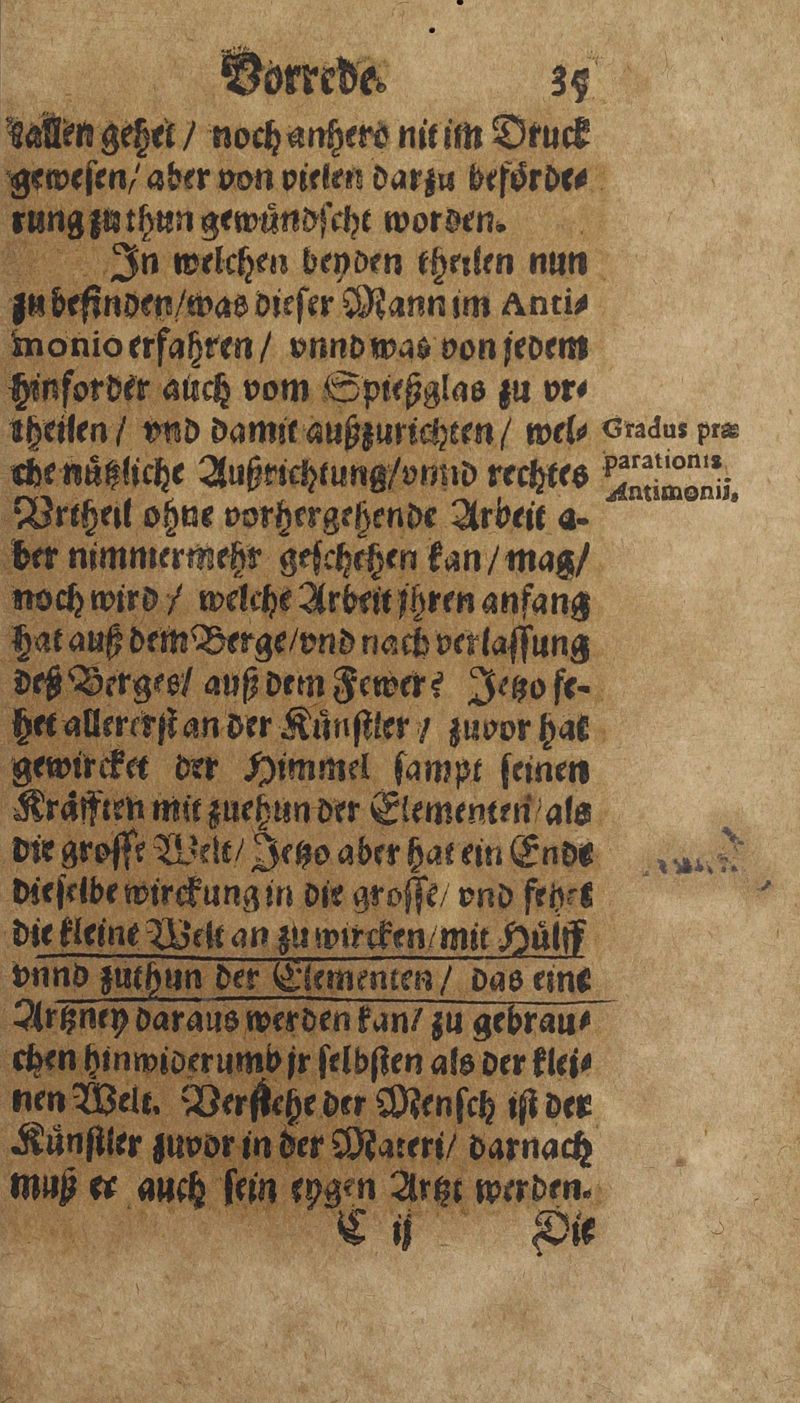 Vorrede. 35
tallen gehet / noch anhero nit im Druck
gewesen / aber von vielen darzu beförde⸗
rung zu thun gewündscht worden.
In welchen beyden theilen nun
zu befinden / was dieser Mann im Anti⸗
monio erfahren / vnnd was von jedem
hinforder auch vom Spießglas zu vr⸗
theilen / vnd damit außzurichten / wel⸗
che nützliche Außrichtung / vnnd rechtes
Vrtheil ohne vorhergehende Arbeit a-
ber nimmermehr geschehen kan / mag /
noch wird / welche Arbeit jhren anfang
hat auß dem Berge / vnd nach verlassung
deß Berges / auß dem Fewer? Jetzo fe-
het allererst an der Künstler / zuvor hat
gewircket der Himmel sampt seinen
Kräfften mit zuthun der Elementen / als
die grosse Welt / Jetzo aber hat ein Ende
dieselbe wirckung in die grosse / vnd fehet
die kleine Welt an zu wircken / mit Hülff
vnnd zuthun der Elementen / das eine
Artzney daraus werden kan / zu gebrau⸗
chen hinwiderumb jr selbsten als der klei⸗
nen Welt. Verstehe der Mensch ist der
Künstler zuvor in der Materi / darnach
muß er auch sein eygen Artzt werden.
C ij Die
Gradus præ
parationis
Antimonii.